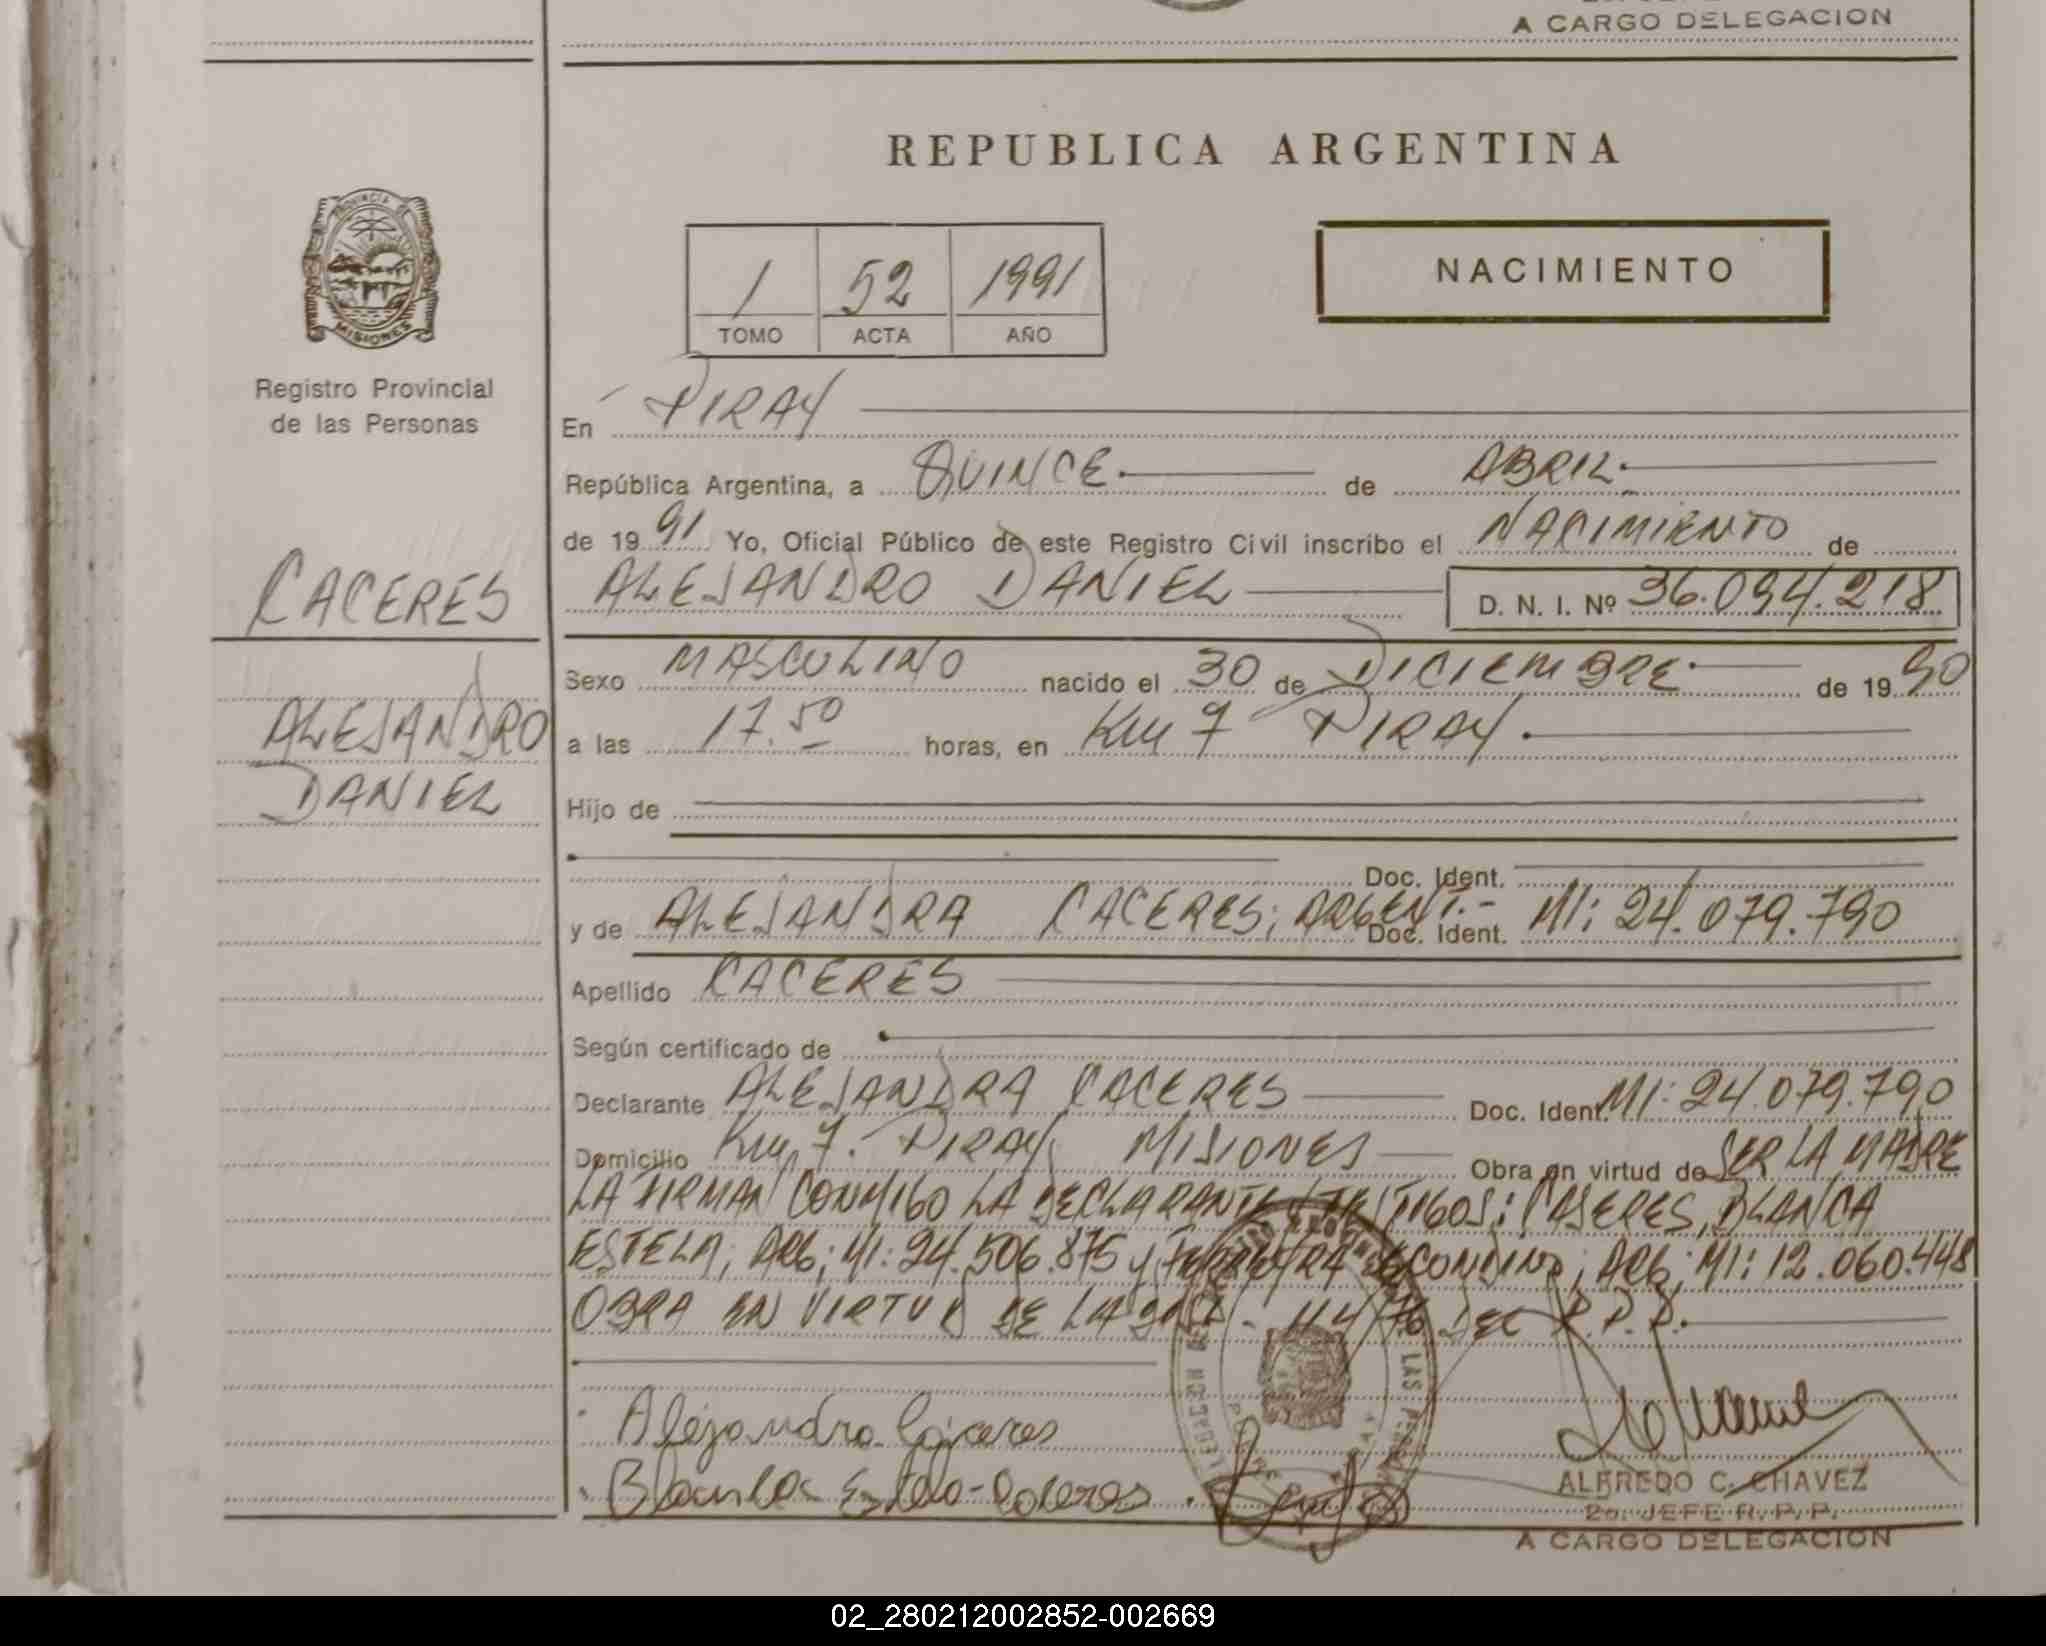 A CARGO DELEGACION
REPUBLICA ARGENTINA
PROVINCIA DE
MISIONES
Registro Provincial
de las Personas
CACERES
ALEJANDRO
DANIEL
1 52 1991
TOMO ACTA AÑO
NACIMIENTO
En PIRAY
República Argentina, a QUINCE de ABRIL
de 1991 Yo, Oficial Público de este Registro Civil inscribo el NACIMIENTO de
ALEJANDRO DANIEL D. N. I. Nº 36.094.218
Sexo MASCULINO nacido el 30 de DICIEMBRE de 1990
a las 17.50 horas, en Km 7 PIRAY.
Hijo de
Doc. Ident.
y de ALEJANDRA CACERES; ARGENT.- Doc. Ident. MI: 24.079.790
Apellido CACERES
Según certificado de
Declarante ALEJANDRA CACERES Doc. Ident. MI: 24.079.790
Domicilio Km 7. PIRAY MISIONES Obra en virtud de SER LA MADRE
LA FIRMAN CONMIGO LA DECLARANTE Y TESTIGOS: CASERES, BLANCA
ESTELA; ARG; MI: 24.506.875 y SECONDINO; ARG; MI: 12.060.448
OBRA EN VIRTUD DE LA DEL R.P.P.
Alejandra Cáceres
Blanca Estela Caceres
ALFREDO C. CHAVEZ
2o. JEFE R. P. P.
A CARGO DELEGACION
02_280212002852-002669